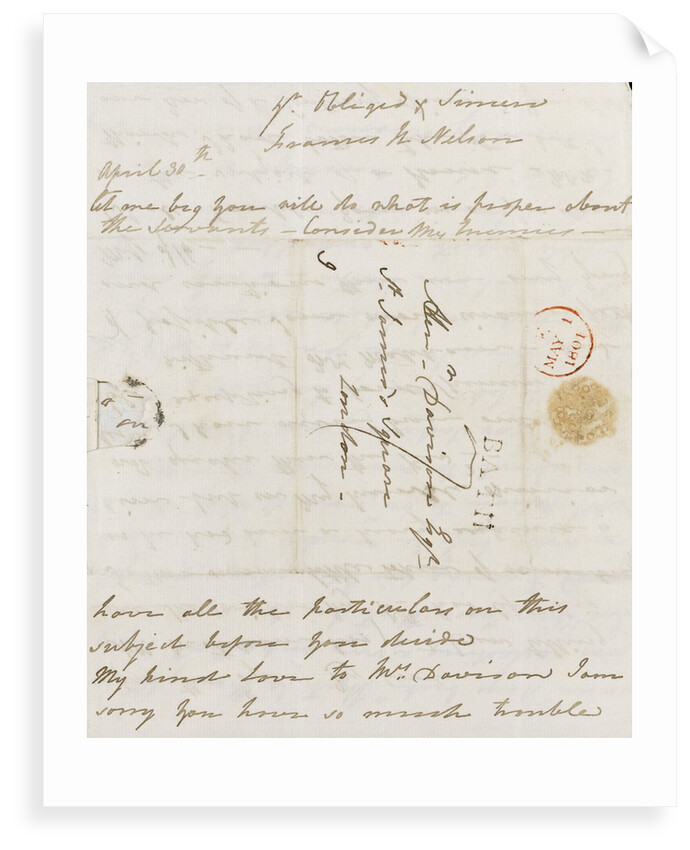 Yr. Obliged & Sincere
Frances H Nelson
April 30th
let me beg you will do what is proper about
the servants – Consider My Enemies –
9
Alexr. Davison Esqr.
St. James's Square
London –
MAY 1
1801
BATH
have all the particulars on this
subject before you decide
My kind love to Mrs. Davison I am
sorry you have so much trouble